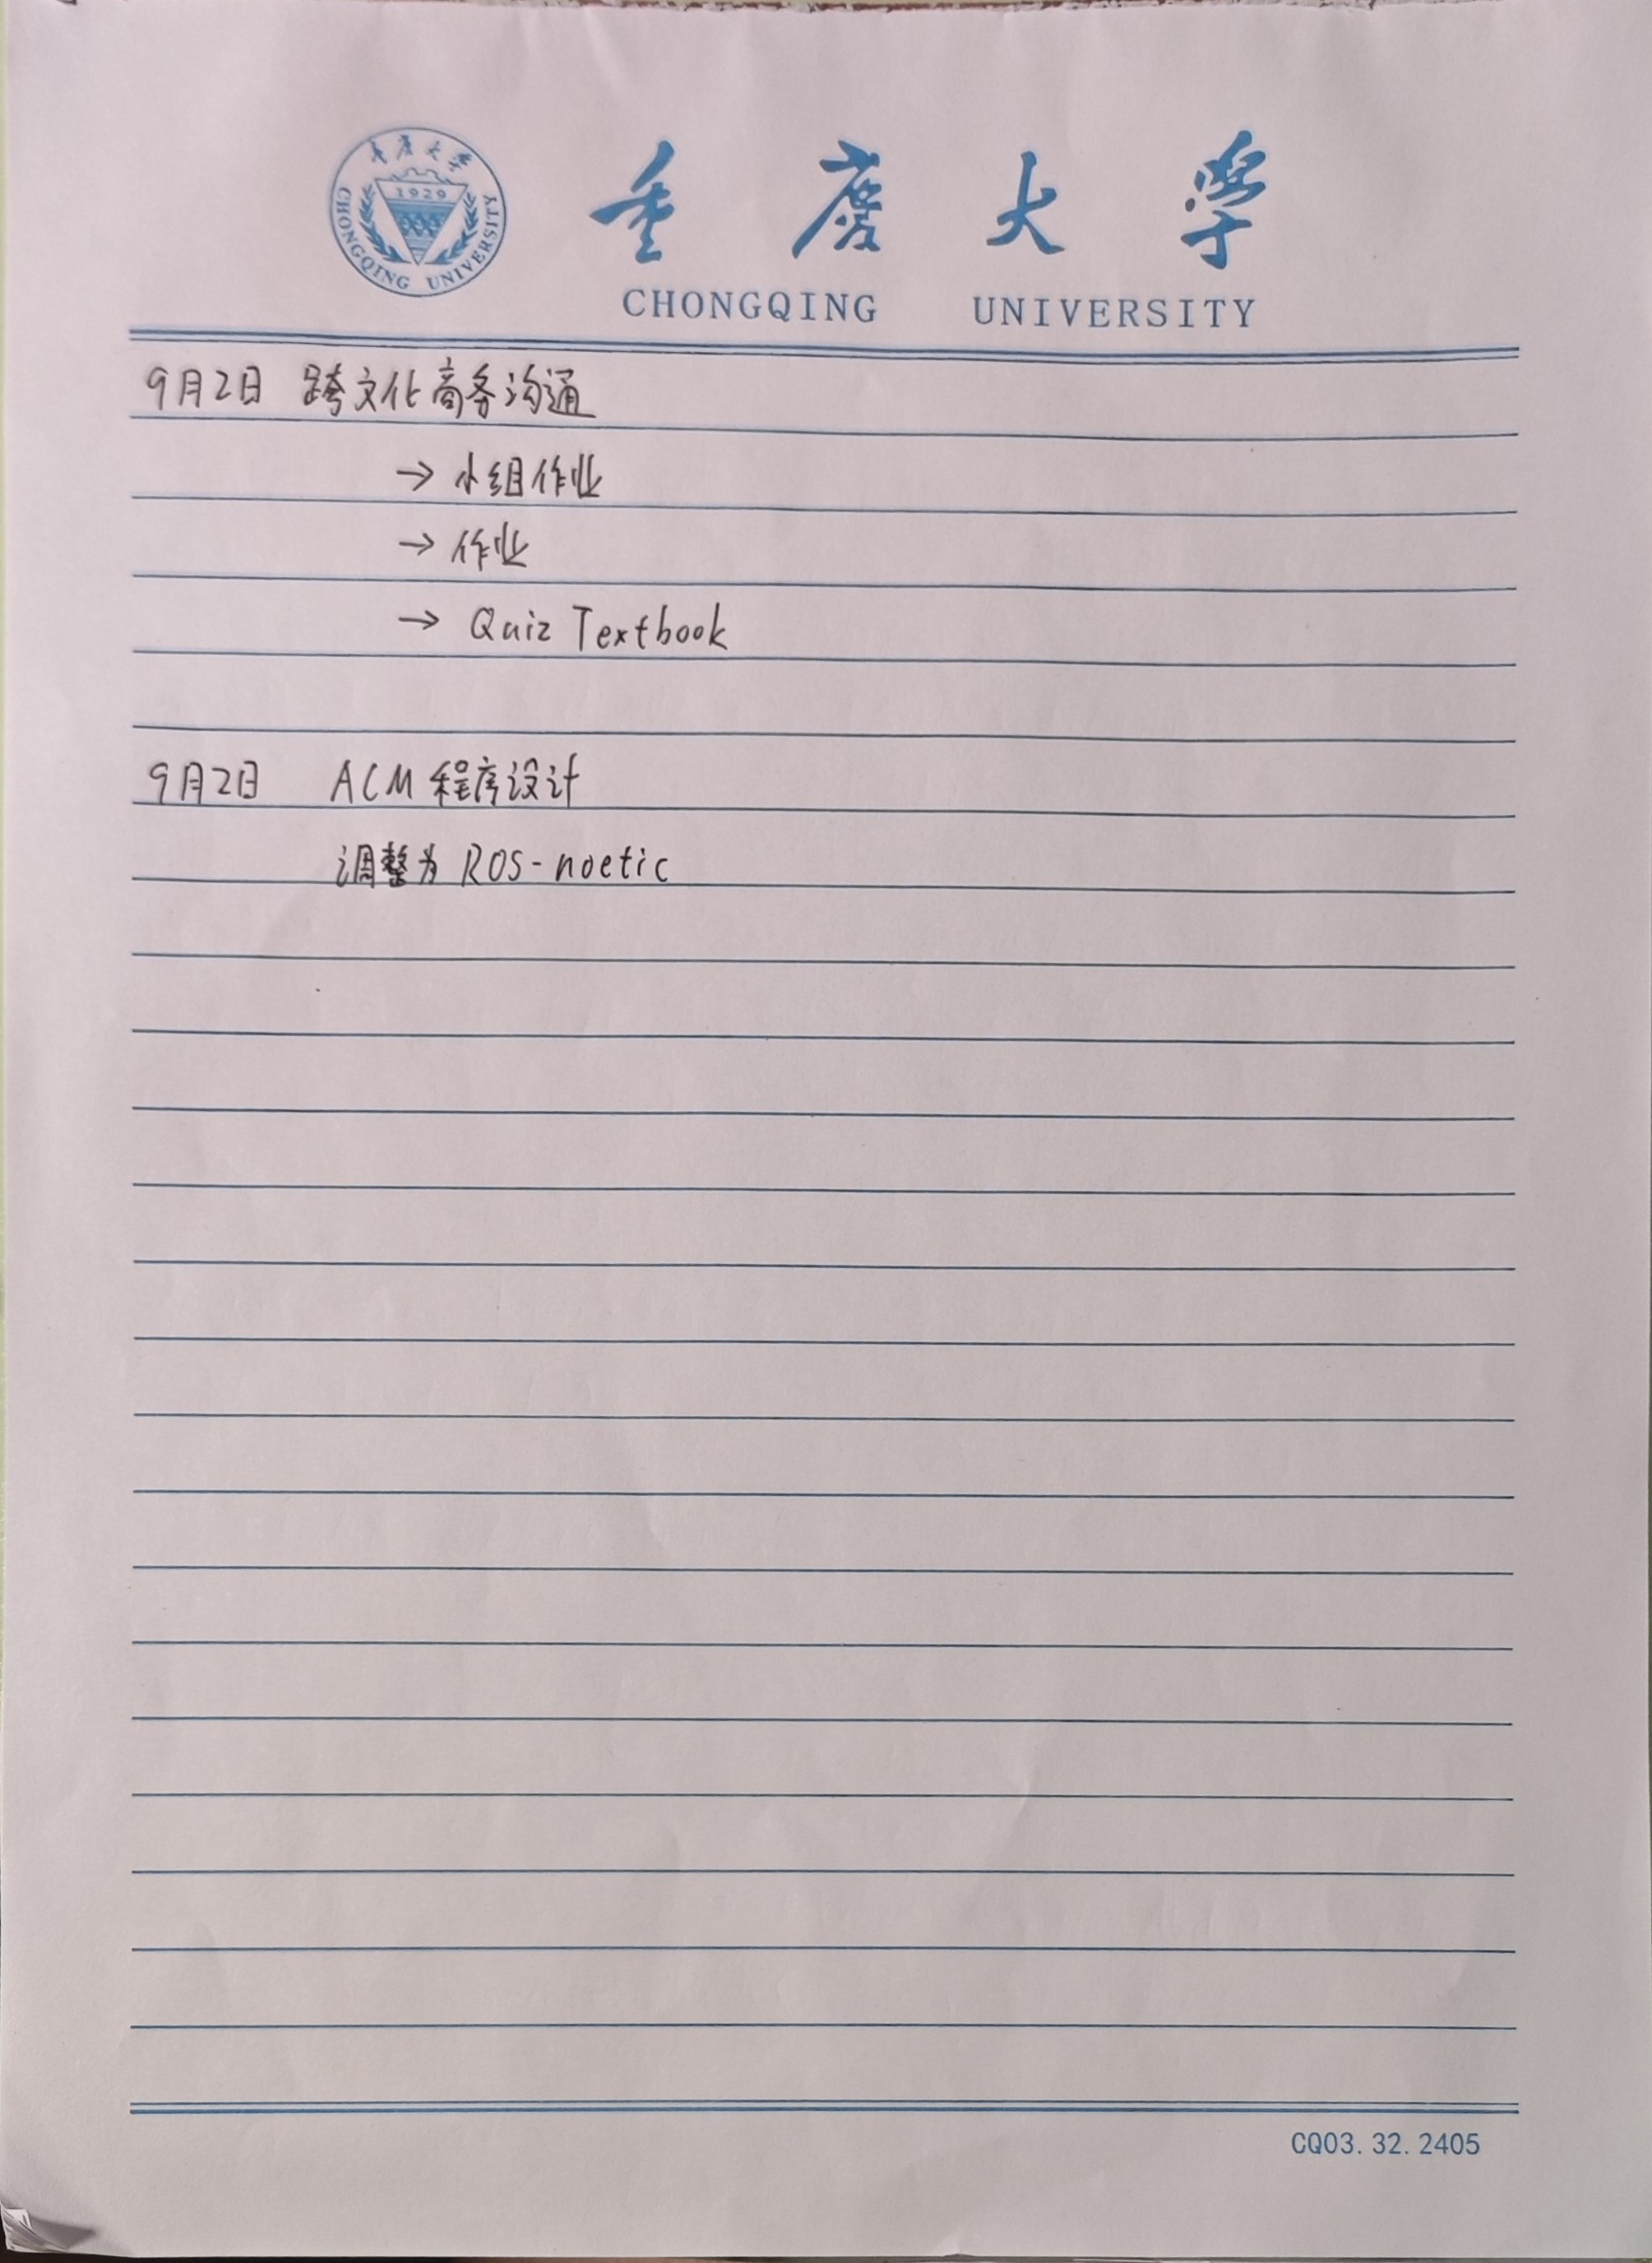 重庆大学
1929
CHONGQING UNIVERSITY
重庆大学
CHONGQING UNIVERSITY
9月2日 跨文化商务沟通
→ 小组作业
→ 作业
→ Quiz Textbook
9月2日 ACM 程序设计
调整为 ROS-noetic
CQ03.32.2405